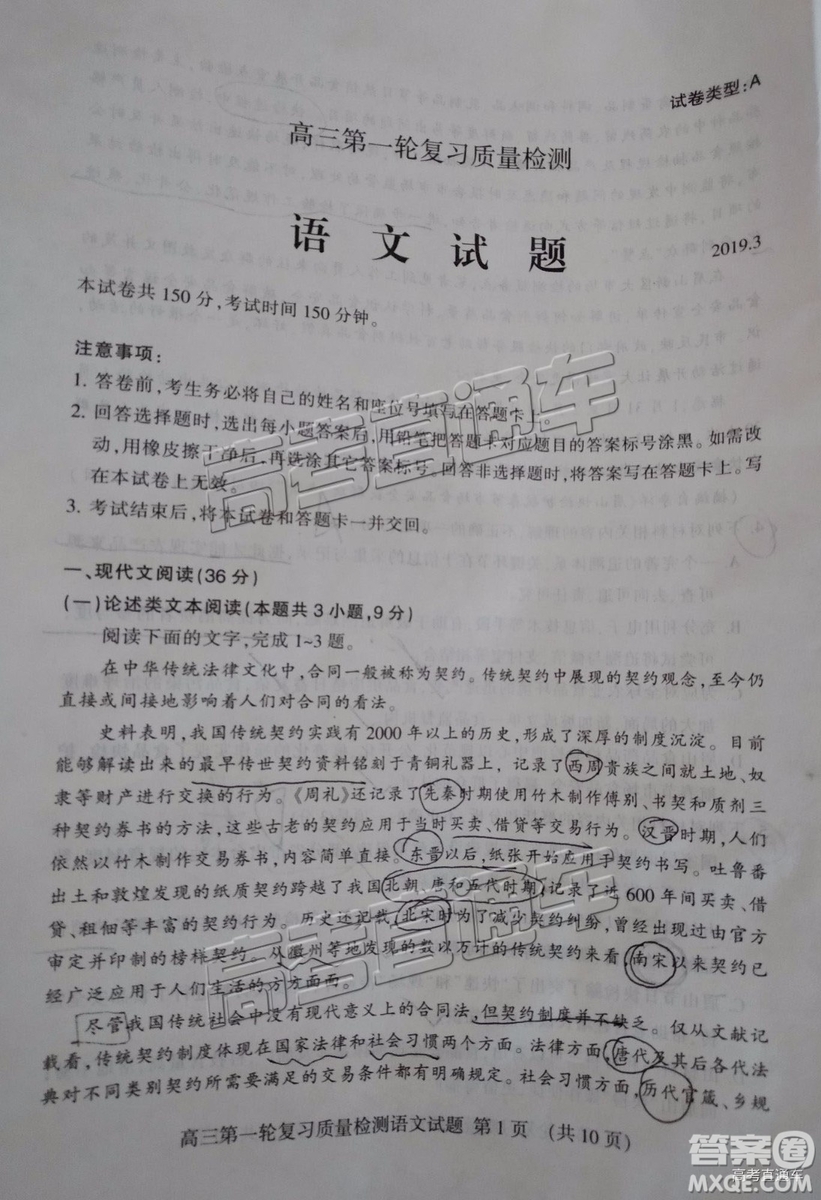 试卷类型:A
高三第一轮复习质量检测
语文试题
2019.3
本试卷共150分,考试时间150分钟。
注意事项:
1. 答卷前,考生务必将自己的姓名和座位号填写在答题卡上。
2. 回答选择题时,选出每小题答案后,用铅笔把答题卡对应题目的答案标号涂黑。如需改
动,用橡皮擦干净后,再选涂其它答案标号。回答非选择题时,将答案写在答题卡上。写
在本试卷上无效。
3. 考试结束后,将本试卷和答题卡一并交回。
一、现代文阅读(36分)
(一)论述类文本阅读(本题共3小题,9分)
阅读下面的文字,完成1~3题。
在中华传统法律文化中,合同一般被称为契约。传统契约中展现的契约观念,至今仍
直接或间接地影响着人们对合同的看法。
史料表明,我国传统契约实践有2000年以上的历史,形成了深厚的制度沉淀。目前
能够解读出来的最早传世契约资料铭刻于青铜礼器上,记录了西周贵族之间就土地、奴
隶等财产进行交换的行为。《周礼》还记录了先秦时期使用竹木制作傅别、书契和质剂三
种契约券书的方法,这些古老的契约应用于当时买卖、借贷等交易行为。汉晋时期,人们
依然以竹木制作交易券书,内容简单直接。东晋以后,纸张开始应用于契约书写。吐鲁番
出土和敦煌发现的纸质契约跨越了我国北朝、唐和五代时期,记录了近600年间买卖、借
贷、租佃等丰富的契约行为。历史还记载,北宋时为了减少契约纠纷,曾经出现过由官方
审定并印制的榜样契约。从徽州等地发现的数以万计的传统契约来看,南宋以来契约已
经广泛应用于人们生活的方方面面。
尽管我国传统社会中没有现代意义上的合同法,但契约制度并不缺乏。仅从文献记
载看,传统契约制度体现在国家法律和社会习惯两个方面。法律方面,唐代及其后各代法
典对不同类别契约所需要满足的交易条件都有明确规定。社会习惯方面,历代官箴、乡规
高三第一轮复习质量检测语文试题 第1页 (共10页)
高考直通车
高考直通车
答案圈
高考直通车
MXQE.COM